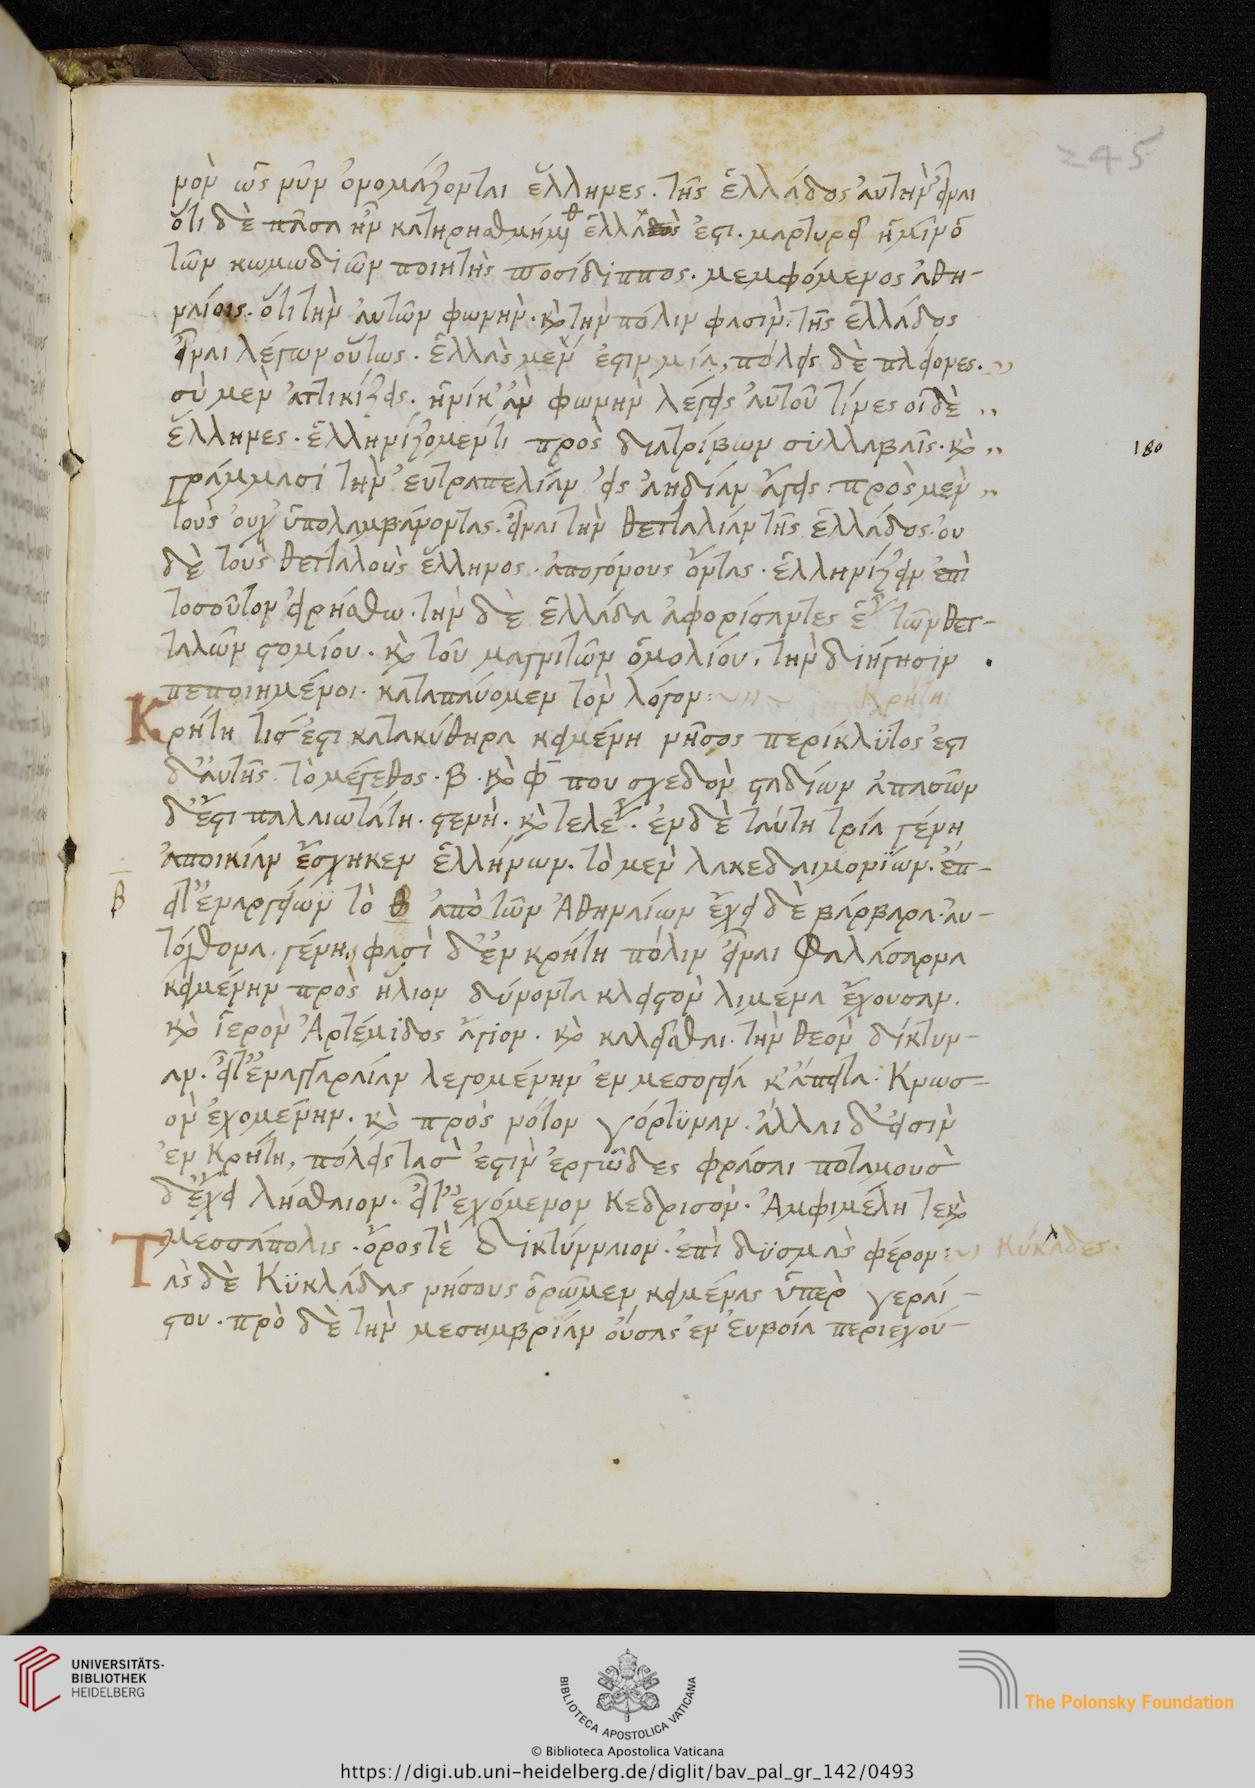 245
νον ὡς νῦν ὀνομάζονται ἕλληνες. τῆς ἑλλάδος αὐτὴν εἶναι
ὅτι δὲ πᾶσα ἣν κατηριθμήμεθ ἑλλάς ἐστι. μαρτυρεῖ ἡμῖν ὁ
τῶν κωμωδιῶν ποιητὴς ποσίδιππος. μεμφόμενος ἀθη-
ναίοις. ὅτι τὴν αὐτῶν φωνὴν. καὶ τὴν πόλιν φασὶν. τῆς ἑλλάδος
εἶναι λέγων οὕτως. ἑλλὰς μὲν ἐστιν μία, πόλεις δὲ πλείονες.
σὺ μὲν ἀττικίζεις. ἡνίκ' ἂν φωνὴν λέγεις αὐτοῦ τίνες οἱ δὲ
ἕλληνες. ἑλληνίζομεν τι προς διατρίβων συλλαβαῖς. καὶ
γράμμασι τὴν εὐτραπελίαν εἰς ἀηδίαν ἄγεις. πρὸς μὲν
180
τοὺς οὐχ ὑπολαμβάνοντας. εἶναι τὴν θετταλίαν τῆς ἑλλάδος. οὐ
δὲ τοὺς θετταλοὺς ἕλληνος. ἀπογόνους ὄντας. ἑλληνίζειν ἐπὶ
τοσοῦτον εἰρήσθω. τὴν δὲ ἑλλάδα ἀφορίσαντες ἕως τῶν θετ-
ταλῶν στομίου. καὶ τοῦ μαγνιτῶν ὁμολίου. τὴν διήγησιν
πεποιημένοι. καταπαύομεν τὸν λόγον:
Κρήτη
Κρήτη τίς ἐστι κατακύθηρα κειμένη νῆσος περίκλϋτος ἐστι
δ' αὐτῆς. τὸ μέγεθος. β. καὶ φ που σχεδὸν σταδίων ἁπασῶν
δ' ἔστι παλαιωτάτη. στενὴ. καὶ τελευ. ἐν δὲ ταύτη τρία γένη
ἀποικίαν ἔσχηκεν ἑλλήνων. τὸ μὲν λακεδαιμονϊων. ἐπ-
β
εῖτ' ἐν ἀργείων τὸ ἀπὸ τῶν Ἀθηναίων ἔχει δὲ βάρβαρα αὐ-
τόχθονα γένη. φασὶ δ' ἐν κρήτη πόλιν εἶναι Φαλάσαρνα
κειμένην πρὸς ἥλιον δύνοντα κλειστὸν λιμένα ἔχουσαν.
καὶ ἱερὸν Ἀρτέμιδος ἅγιον. καὶ καλεῖσθαι. τὴν θεὸν δίκτυν-
αν. λεγομένην ἐν μεσογεία Κνωσ-
ὸν ἐχομένην. καὶ πρὸς νότον γόρτϋναν. ἄλλαι δ' εἰσὶν
ἐν Κρήτη, πόλεις τασ ἐστὶν ἐργῶδες φράσαι ποταμοὺσ
δ' ἔχει λήθαιον. εἶτ' ἐχόμενον Κεδρισὸν. Ἀμφιμέλη τε καὶ
μεσσάπολις. ὄρος τὲ δικτύνναιον. ἐπὶ δϋσμὰς φέρον:
Κύκλαδες.
Τὰς δὲ Κϋκλάδας νήσους ὁρῶμεν κειμένας ὑπὲρ γεραί-
στου. πρὸ δὲ τὴν μεσημβρίαν οὔσας ἐν Εὐβοία περιεχού-
UNIVERSITÄTS-
BIBLIOTHEK
HEIDELBERG
BIBLIOTECA APOSTOLICA VATICANA
The Polonsky Foundation
© Biblioteca Apostolica Vaticana
https://digi.ub.uni-heidelberg.de/diglit/bav_pal_gr_142/0493